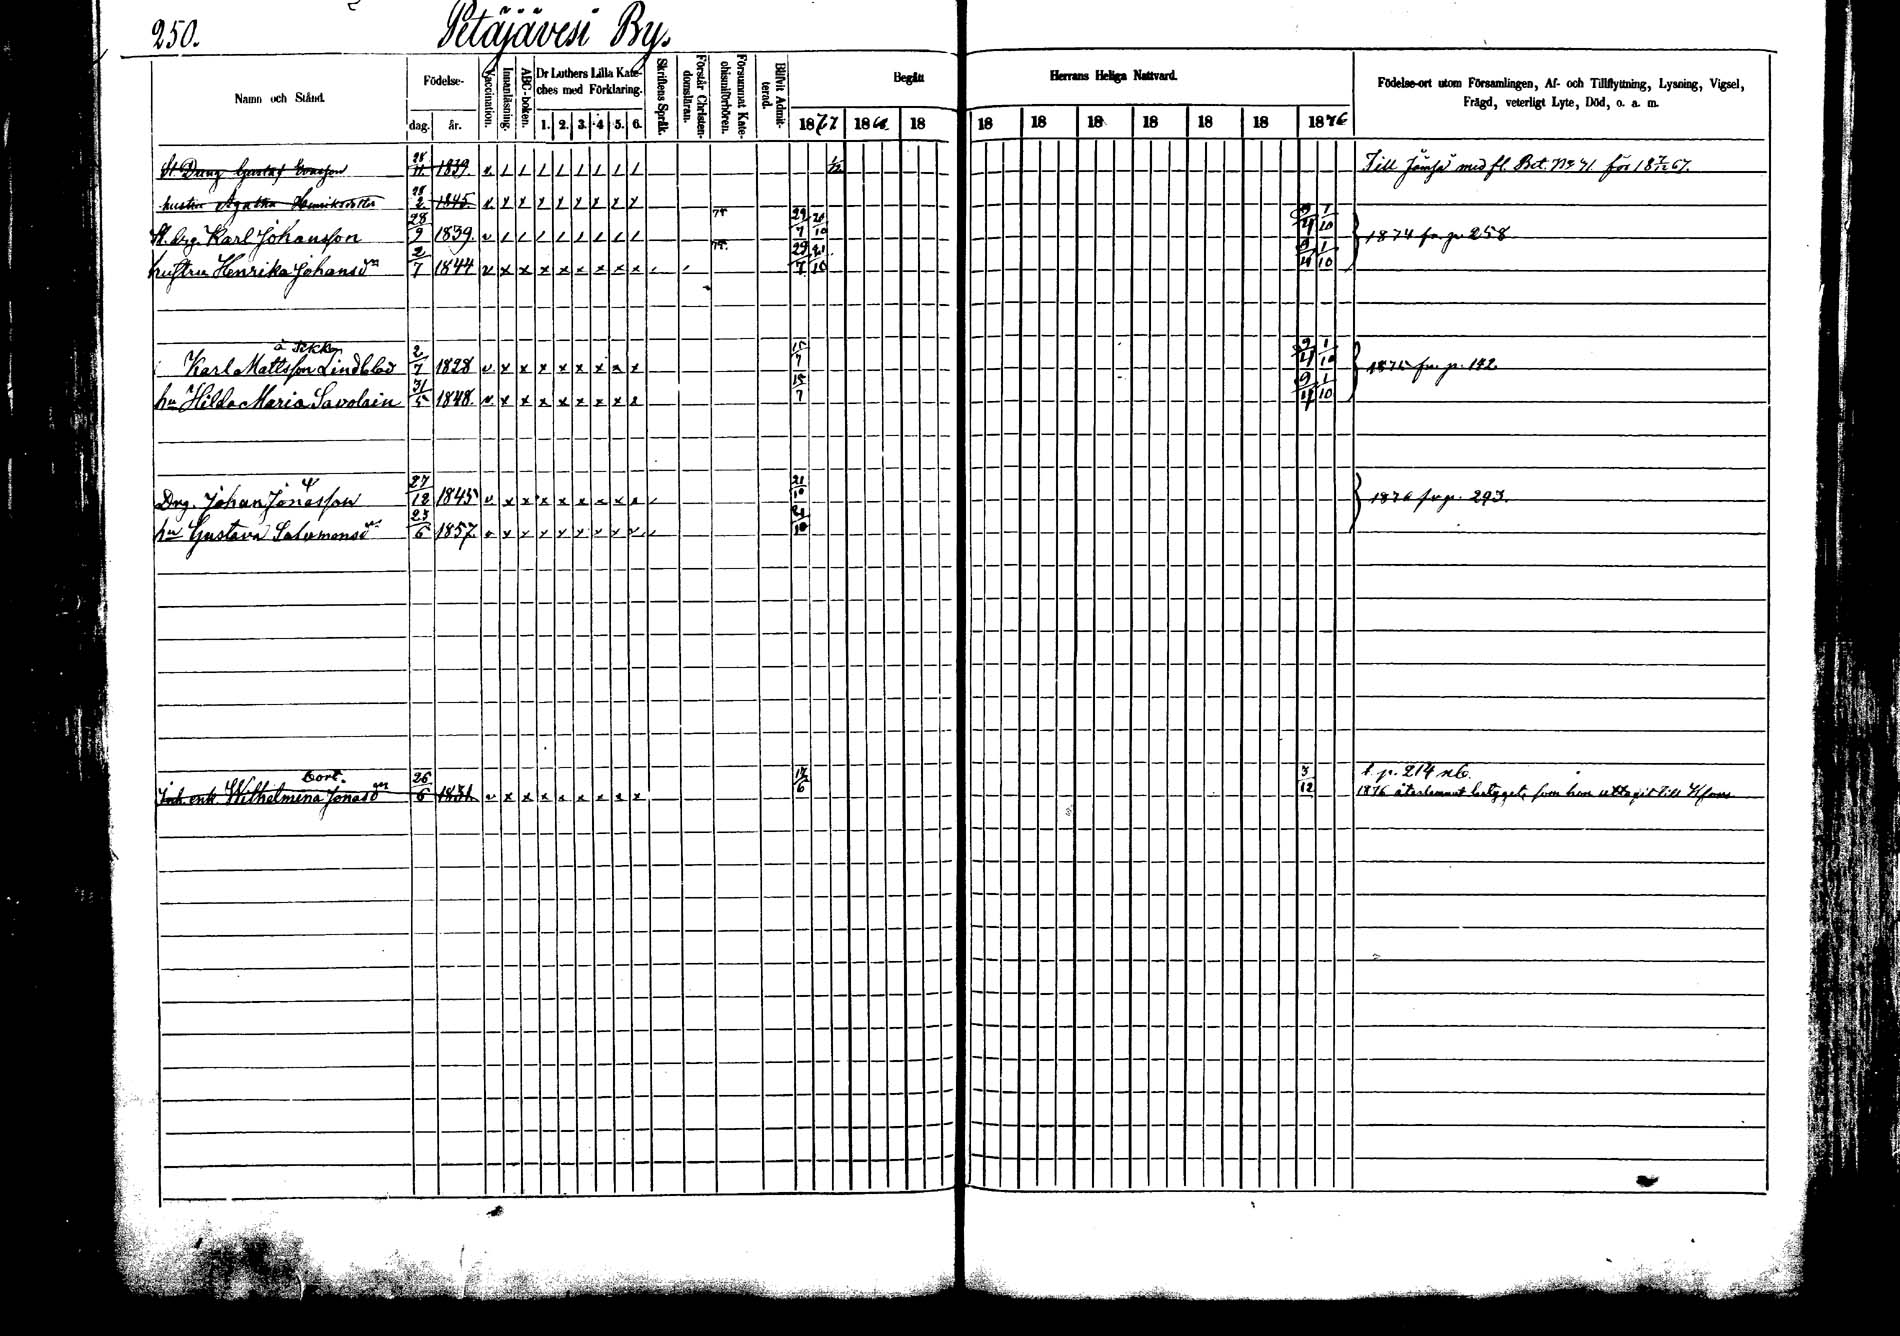 250. Petäjävesi By.
Namn och Stånd. Födelse- dag. år. Vaccination. Innanläsning. ABC-boken. Dr Luthers Lilla Kateches med Förklaring. 1. 2. 3. 4 5. 6. Skriftens Språk. Förstår Christendomsläran. Försummat Katechismiförhören. Blifvit Admitterad. Begått Herrans Heliga Nattvard. Födelse-ort utom Församlingen, Af- och Tillflyttning, Lysning, Vigsel, Frägd, veterligt Lyte, Död, o. a. m.
1867 1868 18 18 18 18 18 18 18 1876
St. Dräng Gustaf 28/11 1839. v 1/12 Till Jämsä med fl. Bet. No 71 för 18 7/12 67.
hustru Agatha Henriksdotter 28/2 1845. v x x x x x x x x
St. drg. Karl Johansson 28/9 1839. v 75 29/7 21/10 9/4 1/10 1874 fr. p. 258
hustru Henrika Johansdr 2/7 1844 v x x x x x x x x 75. 29/7 21/10 9/4 1/10
Karl Mattsson Lindblad 2/7 1828 v x x x x x x x x 15/7 9/4 1/10 1875 fr. p. 142
hu Hilda Maria Savolain 31/5 1848. v x x x x x x x x 15/7 9/4 1/10
Drg. Johan Jonasson 27/12 1845 v x x x x x x x x 21/10 1876 fr p. 293.
hu Gustava Salomonsdr 23/6 1857. v x x x x x x x x 21/10
bort.
Inh. enk. Wilhelmina Jonasdr 26/6 1831 v x x x x x x x x 17/6 3/12 t. p. 214 nb.
1876 återlemnat betyget, som hon uttagit till